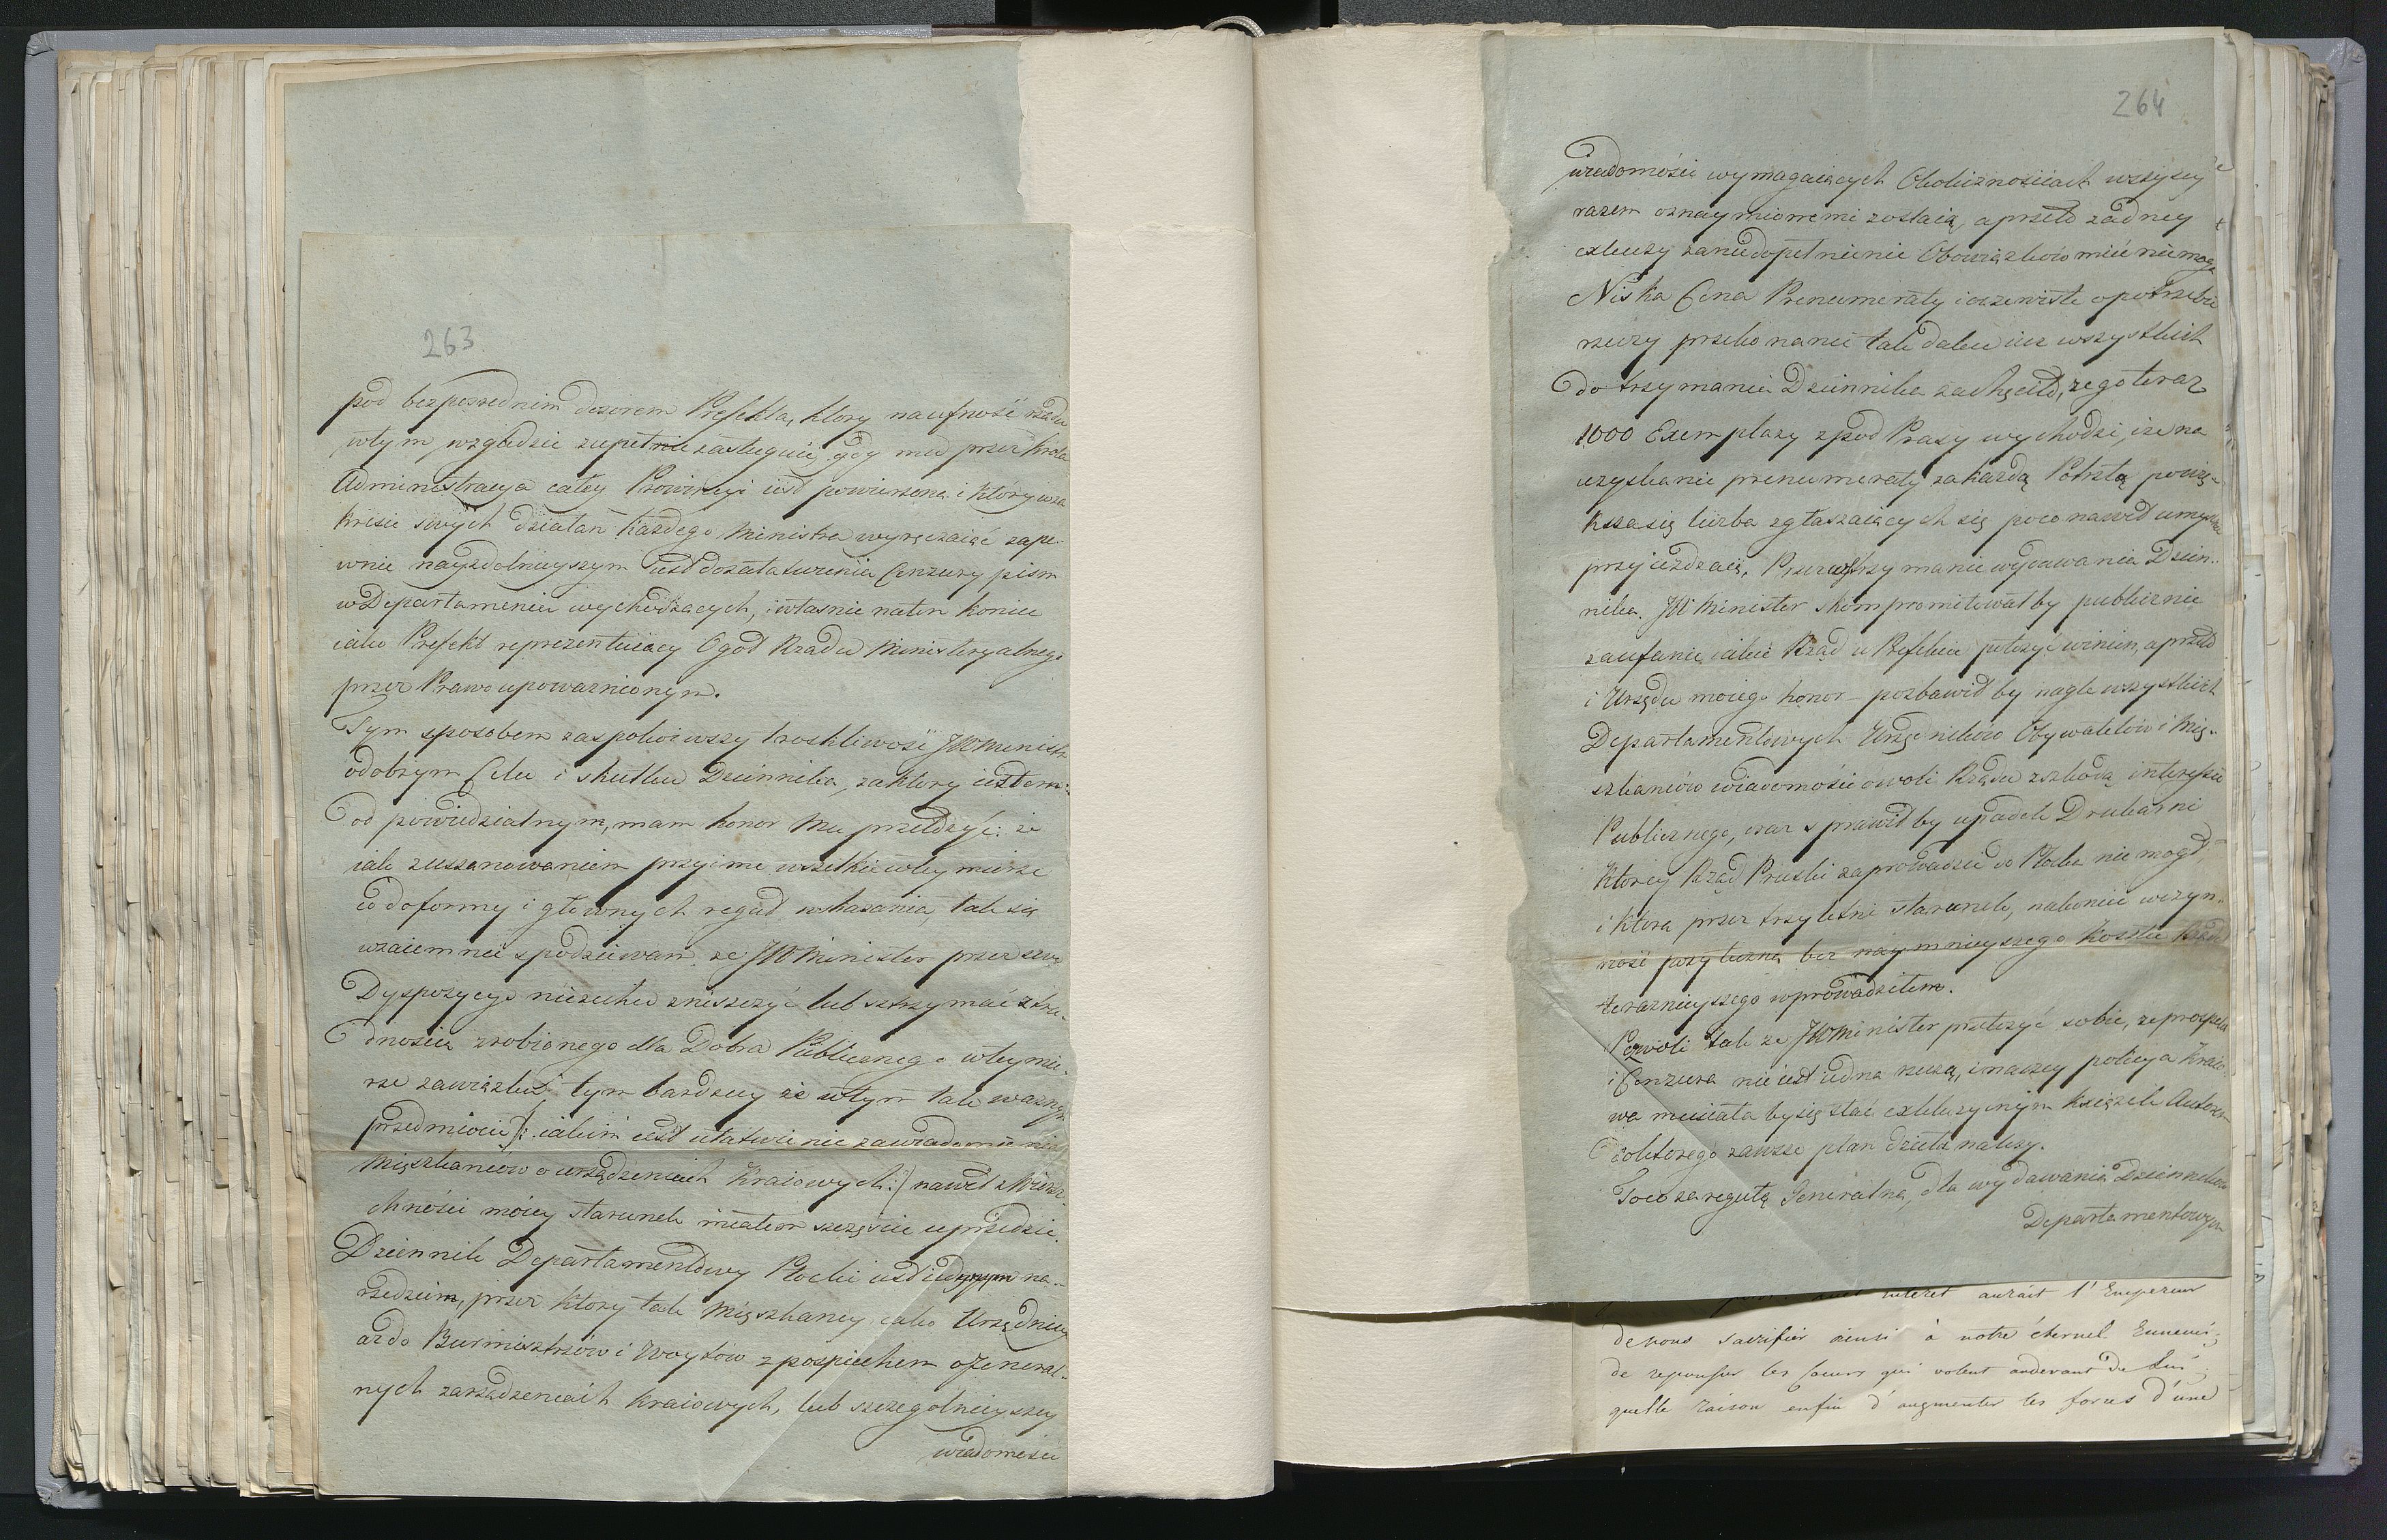 263
pod bezposrednim dozorem Prefekta, ktory na ufność rządu
w tym względzie zupełnie zasługuie, gdy mu przez Krola
Administracya całey Prowincyi iest powierzona i który w za
kresie swych działań każdego Ministra wyręczaiąc zape-
wnie nayzdolnieyszym iest do załatwienia Cenzury pism
w Departamencie wychodzących, i własnie na ten koniec
iako Prefekt reprezentuiący Ogoł Rządu Ministeryalnego
przez Prawo upoważnionym.
Tym sposobem zaspokoiwszy troskliwość JW Ministra
o dobrym Celu i skutku Dziennika, za ktory iestem
odpowiedzialnym, mam honor Mu przełożyć: że
iak z uszanowaniem przyimę wszelkie w tey mierze
co do formy i głownych reguł wskazania, tak się
wzaiemnie spodziewam że JW Minister przez swe
Dyspozycye nie zechce zniszczyć lub wstrzymać z tru-
dnością zrobionego dla Dobra Publicznego w tey mie-
rze zawiązku, tym bardziey że w tym tak ważnym
przedmiocie /: iakim iest ułatwienie zawiadomienia
Mięszkańców o urządzeniach Kraiowych :/ nawet Zwierz-
chności moiey starunek miałem szczęście uprzedzić.
Dziennik Departamentowy Płocki iest iedynym na-
rzędziem, przez ktory tak Mięszkańcy iako Urzędnicy
aż do Burmistrzów i Woytów z pospiechem o Jeneral-
nych zarządzeniach Kraiowych, lub szczegolnieyszey
wiadomości
264
wiadomości wymagaiących Okolicznościach wszyscy
razem oznaymionemi zostaią, a przeto żadney
exkuzy za niedopełnienie Obowiązków mieć nie mogą
Niska Cena Prenumeraty i oczewiste o potrzebie
rzeczy przekonanie tak dalece iuż wszystkich
do trzymania Dziennika zachęciło, że go teraz
1000 Exemplarzy z pod Prasy wychodzi, i że na
uzyskanie prenumeraty za każdą Pocztą powię-
ksza się liczba zgłaszaiących się po co nawet umyślnie
przyieżdzaią. Przez wstrzymanie wydawania Dzien-
nika. JW Minister skompromitował by publicznie
zaufanie iakie Rząd w Prefekcie położyć winien, a przeto
i Urzędu moiego honor – pozbawił by nagle wszystkich
Departamentowych Urzędników Obywatelów i Mię-
szkańców wiadomości o woli Rządu z szkodą interessu
Publicznego, oraz sprawił by upadek Drukarni
Ktorey Rząd Pruski zaprowadzić w Płocku nie mogł,
i ktora przez trzyletni starunek, nakoniec w czyn-
ność pożyteczną bez naymnieyszego Kosztu Rządu
teraznieyszego wprowadziłem.
Pozwoli tak że JW Minister przełożyć sobie, że prospekt
i Cenzura nie iest iedna rzeczą, inaczey policya Kraio-
wa musiała by się stać exkluzyinym Książek Autorem
do ktorego zawsze plan dzieła należy.
To co za regułę Jeneralną, dla wydawania Dzienników
Departamentowych
interet aurait l'Empereur
de nous sacrifier ainsi à notre éternel Ennemi;
de repousser les Coeurs qui volent audevant de Lui;
quelle raison enfin d'augmenter les forces d'une